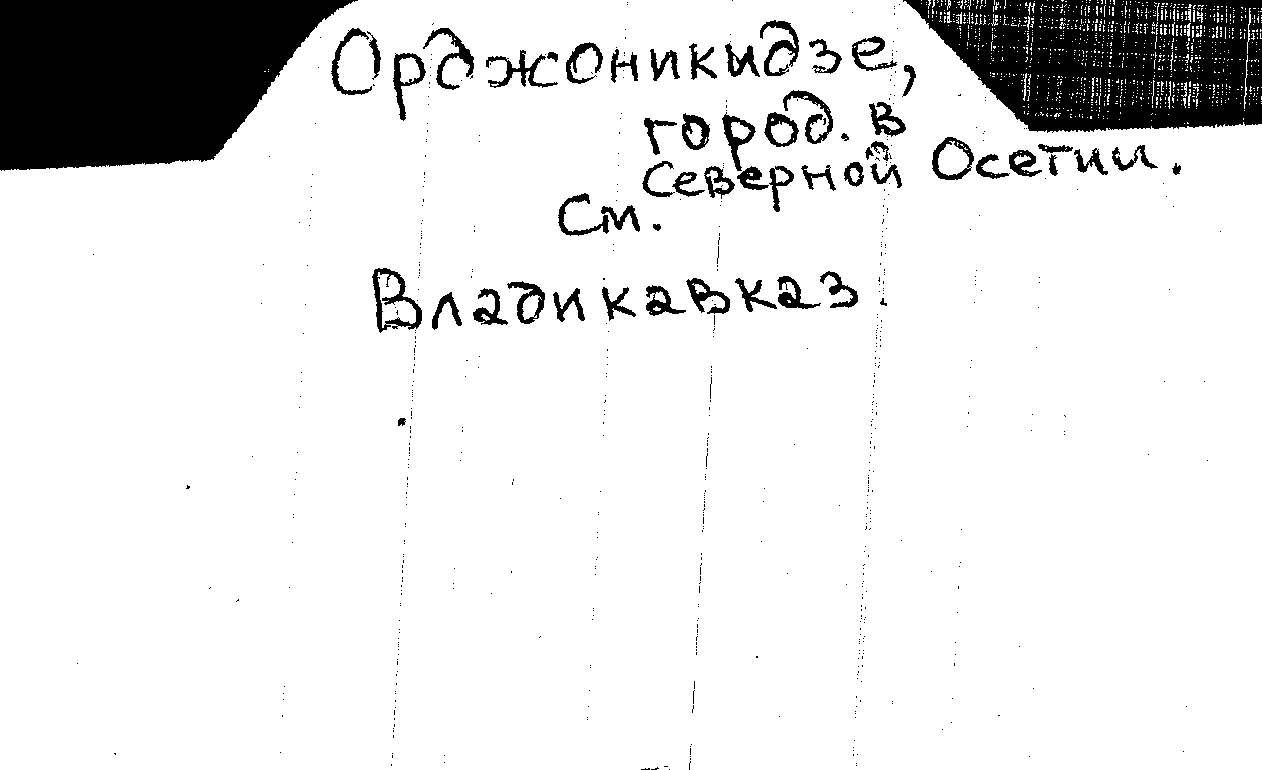 Орджоникидзе,
город. в
Северной Осетии.
См.
Владикавказ.